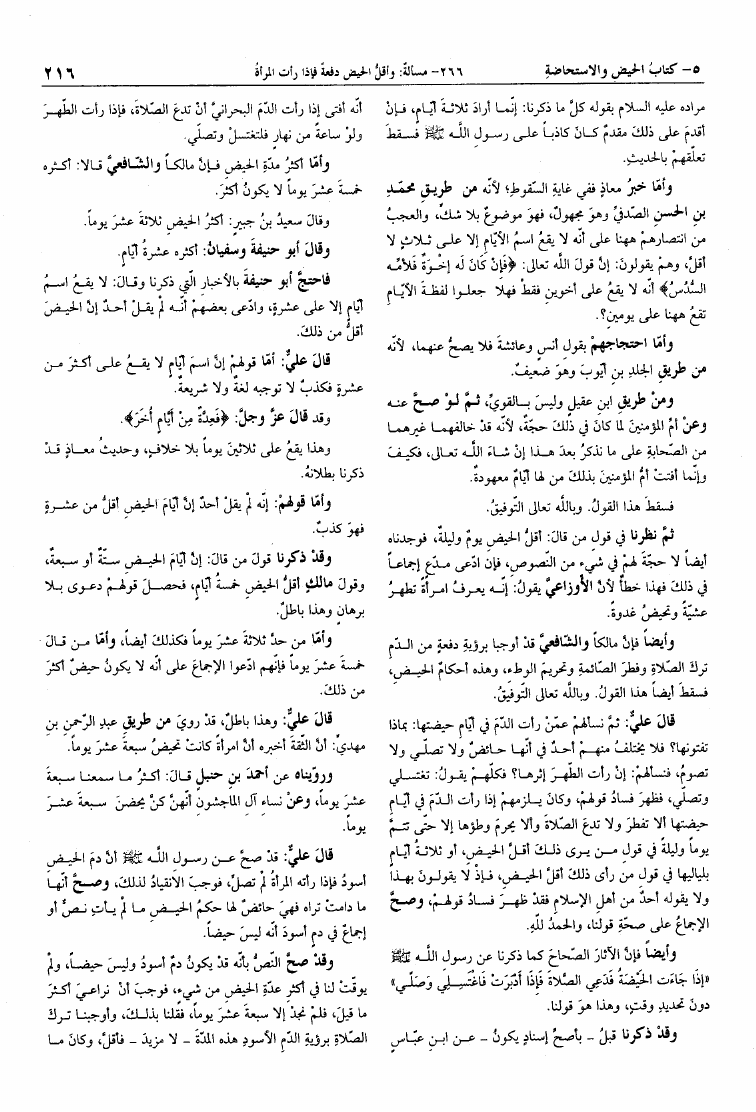 ٥- كتابُ الحيض والاستحاضةِ
٢٦٦- مسألةٌ: وأقلُّ الحيض دفعةٌ فإذا رأت المرأةُ
٢١٦
مراده عليه السلام بقوله كلَّ ما ذكرنا: إنّما أرادَ ثلاثةَ أيّامٍ، فإنْ
أقدمَ على ذلكَ مقدمٌ كانَ كاذباً على رسولِ اللَّه ﷺ فسقطَ
تعلّقهمْ بالحديثِ.
وأمّا خبرُ معاذٍ ففي غايةِ السّقوطِ؛ لأنّه من طريقِ محمّدِ
بنِ الحسنِ الصّدفيِّ وهوَ مجهولٌ، فهوَ موضوعٌ بلا شكٍّ، والعجبُ
من انتصارهمْ ههنا على أنّه لا يقعُ اسمُ الأيّامِ إلا على ثلاثٍ لا
أقلَّ، وهمْ يقولونَ: إنَّ قولَ اللَّه تعالى: ﴿فَإِنْ كَانَ لَه إخْوَةٌ فَلأُمِّه
السُّدُسُ﴾ أنّه لا يقعُ على أخوينِ فقطْ فهلا جعلوا لفظةَ الأيّامِ
تقعُ ههنا على يومينِ؟.
وأمّا احتجاجهمْ بقولِ أنسٍ وعائشةَ فلا يصحُّ عنهما، لأنّه
من طريقِ الجلدِ بنِ أيّوبَ وهوَ ضعيفٌ.
ومنْ طريقِ ابنِ عقيلٍ وليسَ بالقويِّ، ثمَّ لوْ صحَّ عنه
وعنْ أمِّ المؤمنينَ لما كانَ في ذلكَ حجّةٌ، لأنّه قدْ خالفهما غيرهما
من الصّحابةِ على ما نذكرُ بعدَ هذا إنْ شاءَ اللَّه تعالى، فكيفَ
وإنّما أفتتْ أمُّ المؤمنينَ بذلكَ من لها أيّامٌ معهودةٌ.
فسقطَ هذا القولُ. وباللَّه تعالى التّوفيقُ.
ثمَّ نظرنا في قولِ من قالَ: أقلُّ الحيضِ يومٌ وليلةٌ، فوجدناه
أيضاً لا حجّةَ لهمْ في شيءٍ من النّصوصِ، فإن ادّعى مدّعٍ إجماعاً
في ذلكَ فهذا خطأٌ لأنَّ الأوزاعيَّ يقولُ: إنّه يعرفُ امرأةً تطهرُ
عشيّةً وتحيضُ غدوةً.
وأيضاً فإنَّ مالكاً والشّافعيَّ قدْ أوجبا برؤيةِ دفعةٍ من الدّمِ
تركَ الصّلاةِ وفطرَ الصّائمةِ وتحريمَ الوطءِ، وهذه أحكامُ الحيضِ،
فسقطَ أيضاً هذا القولُ. وباللَّه تعالى التّوفيقُ.
قالَ عليٌّ: ثمَّ نسألهمْ عمّنْ رأت الدّمَ في أيّامِ حيضتها: بماذا
تفتونها؟ فلا يختلفُ منهمْ أحدٌ في أنّها حائضٌ ولا تصلّي ولا
تصومُ، فنسألهمْ: إنْ رأت الطّهرَ إثرها؟ فكلّهمْ يقولُ: تغتسلُ
وتصلّي، فظهرَ فسادُ قولهمْ، وكانَ يلزمهمْ إذا رأت الدّمَ في أيّامِ
حيضتها ألا تفطرَ ولا تدعَ الصّلاةَ وألا يحرمَ وطؤها إلا حتّى تتمَّ
يوماً وليلةً في قولِ من يرى ذلكَ أقلَّ الحيضِ، أو ثلاثةَ أيّامٍ
بلياليها في قولِ من رأى ذلكَ أقلَّ الحيضِ، فإذْ لا يقولونَ بهذا
ولا يقوله أحدٌ من أهلِ الإسلامِ فقدْ ظهرَ فسادُ قولهمْ، وصحَّ
الإجماعُ على صحّةِ قولنا، والحمدُ للَّهِ.
وأيضاً فإنَّ الآثارَ الصّحاحَ كما ذكرنا عن رسولِ اللَّه ﷺ
«إذَا جَاءَت الحَيْضَةُ فَدَعِي الصَّلاةَ فَإِذَا أَدْبَرَتْ فَاغْتَسِلِي وَصَلِّي»
دونَ تحديدِ وقتٍ، وهذا هوَ قولنا.
وقدْ ذكرنا قبلُ - بأصحِّ إسنادٍ يكونُ - عن ابنِ عبّاسٍ
أنّه أفتى إذا رأت الدّمَ البحرانيَّ أنْ تدعَ الصّلاةَ، فإذا رأت الطّهرَ
ولوْ ساعةً من نهارٍ فلتغتسلْ وتصلّي.
وأمّا أكثرُ مدّةِ الحيضِ فإنَّ مالكاً والشّافعيَّ قالا: أكثره
خمسةَ عشرَ يوماً لا يكونُ أكثرَ.
وقالَ سعيدُ بنُ جبيرٍ: أكثرُ الحيضِ ثلاثةَ عشرَ يوماً.
وقالَ أبو حنيفةَ وسفيانُ: أكثره عشرةُ أيّامٍ.
فاحتجَّ أبو حنيفةَ بالأخبارِ الّتي ذكرنا وقالَ: لا يقعُ اسمُ
أيّامٍ إلا على عشرةٍ، وادّعى بعضهمْ أنّه لمْ يقلْ أحدٌ إنَّ الحيضَ
أقلُّ من ذلكَ.
قالَ عليٌّ: أمّا قولهمْ إنَّ اسمَ أيّامٍ لا يقعُ على أكثرَ من
عشرةٍ فكذبٌ لا توجبه لغةٌ ولا شريعةٌ.
وقد قالَ عزَّ وجلَّ: ﴿فَعِدَّةٌ مِنْ أَيَّامٍ أُخَرَ﴾.
وهذا يقعُ على ثلاثينَ يوماً بلا خلافٍ، وحديثُ معاذٍ قدْ
ذكرنا بطلانه.
وأمّا قولهمْ: إنّه لمْ يقلْ أحدٌ إنَّ أيّامَ الحيضِ أقلُّ من عشرةٍ
فهوَ كذبٌ.
وقدْ ذكرنا قولَ من قالَ: إنَّ أيّامَ الحيضِ ستّةٌ أو سبعةٌ،
وقولَ مالكٍ أقلُّ الحيضِ خمسةُ أيّامٍ، فحصلَ قولهمْ دعوى بلا
برهانٍ وهذا باطلٌ.
وأمّا من حدَّ ثلاثةَ عشرَ يوماً فكذلكَ أيضاً، وأمّا من قالَ
خمسةَ عشرَ يوماً فإنّهم ادّعوا الإجماعَ على أنّه لا يكونُ حيضٌ أكثرَ
من ذلكَ.
قالَ عليٌّ: وهذا باطلٌ، قدْ رويَ من طريقِ عبدِ الرّحمنِ بنِ
مهديٍّ: أنَّ الثّقةَ أخبره أنَّ امرأةً كانتْ تحيضُ سبعةَ عشرَ يوماً.
وروّيناه عن أحمدَ بنِ حنبلٍ قالَ: أكثرُ ما سمعنا سبعةَ
عشرَ يوماً، وعنْ نساءِ آلِ الماجشونِ أنّهنَّ كنَّ يحضنَ سبعةَ عشرَ
يوماً.
قالَ عليٌّ: قدْ صحَّ عن رسولِ اللَّه ﷺ أنَّ دمَ الحيضِ
أسودُ فإذا رأته المرأةُ لمْ تصلِّ، فوجبَ الانقيادُ لذلكَ، وصحَّ أنّها
ما دامتْ تراه فهيَ حائضٌ لها حكمُ الحيضِ ما لمْ يأتِ نصٌّ أو
إجماعٌ في دمٍ أسودَ أنّه ليسَ حيضاً.
وقدْ صحَّ النّصُّ بأنّه قدْ يكونُ دمٌ أسودُ وليسَ حيضاً، ولمْ
يوقّتْ لنا في أكثرِ عدّةِ الحيضِ من شيءٍ، فوجبَ أنْ نراعيَ أكثرَ
ما قيلَ، فلمْ نجدْ إلا سبعةَ عشرَ يوماً، فقلنا بذلكَ، وأوجبنا تركَ
الصّلاةِ برؤيةِ الدّمِ الأسودِ هذه المدّةَ - لا مزيدَ - فأقلَّ، وكانَ ما